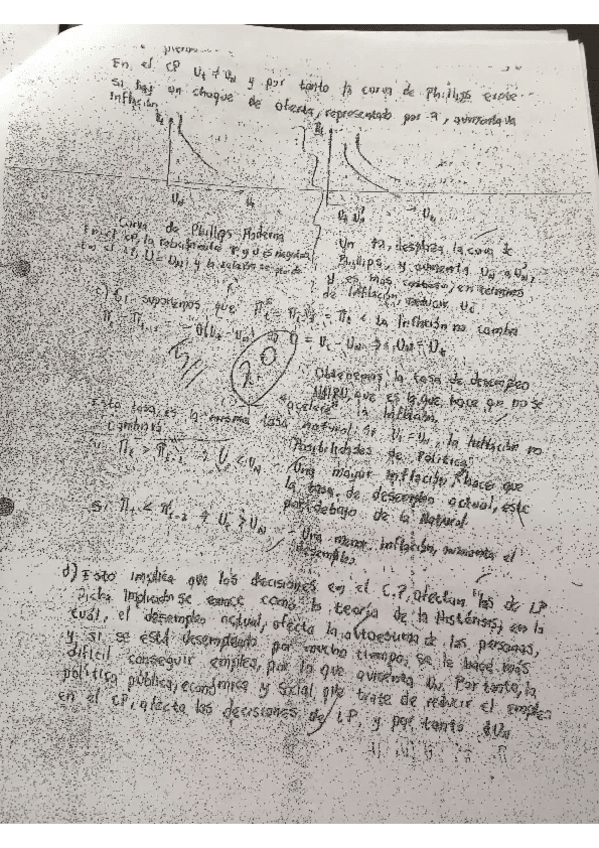 En el CP Ut ≠ UN y por tanto la curva de Phillips
Si hay un choque de oferta, representado por a, aumenta la
inflación
UN Ut
UN U'N Ut
Curva de Phillips Moderna
En el CP, la
en el LP, U = UN, y la relación se pierde
Un ↑a, desplaza la curva de
Phillips, y aumenta UN a U'N,
y es más costoso, en términos
de inflación, reducir Ut
c) Si suponemos que la inflación no cambia
= Ut - UN → UN = Ut
2.0
Obtenemos la tasa de desempleo
NAIRU que es la que hace que no se
"acelere" la inflación.
Esta tasa, es la misma tasa natural. Si Ut = UN, la inflación no
cambiará
Posibilidades de Política
Si πt > πt-1 → Ut < UN
- Una mayor inflación, hace que
la tasa de desempleo actual, esté
por debajo de la Natural.
Si πt < πt-1 → Ut > UN
- Una menor inflación, aumenta el
desempleo.
d) Esto implica que las decisiones en el C.P, afectan las de LP
Dicha implicación se conoce como la teoría de la Histérisis, en la
cual, el desempleo actual, afecta la autoestima de las personas,
y si se está desempleado por mucho tiempo, se le hace más
difícil conseguir empleo, por lo que aumenta UN. Por tanto, la
política pública, económica y social que trate de reducir el empleo
en el CP, afecta las decisiones de LP, y por tanto UN